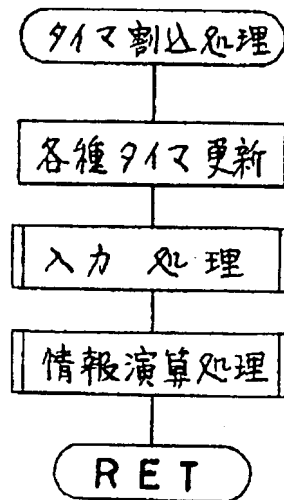 タイマ割込処理
各種タイマ更新
入力 処理
情報演算処理
RET